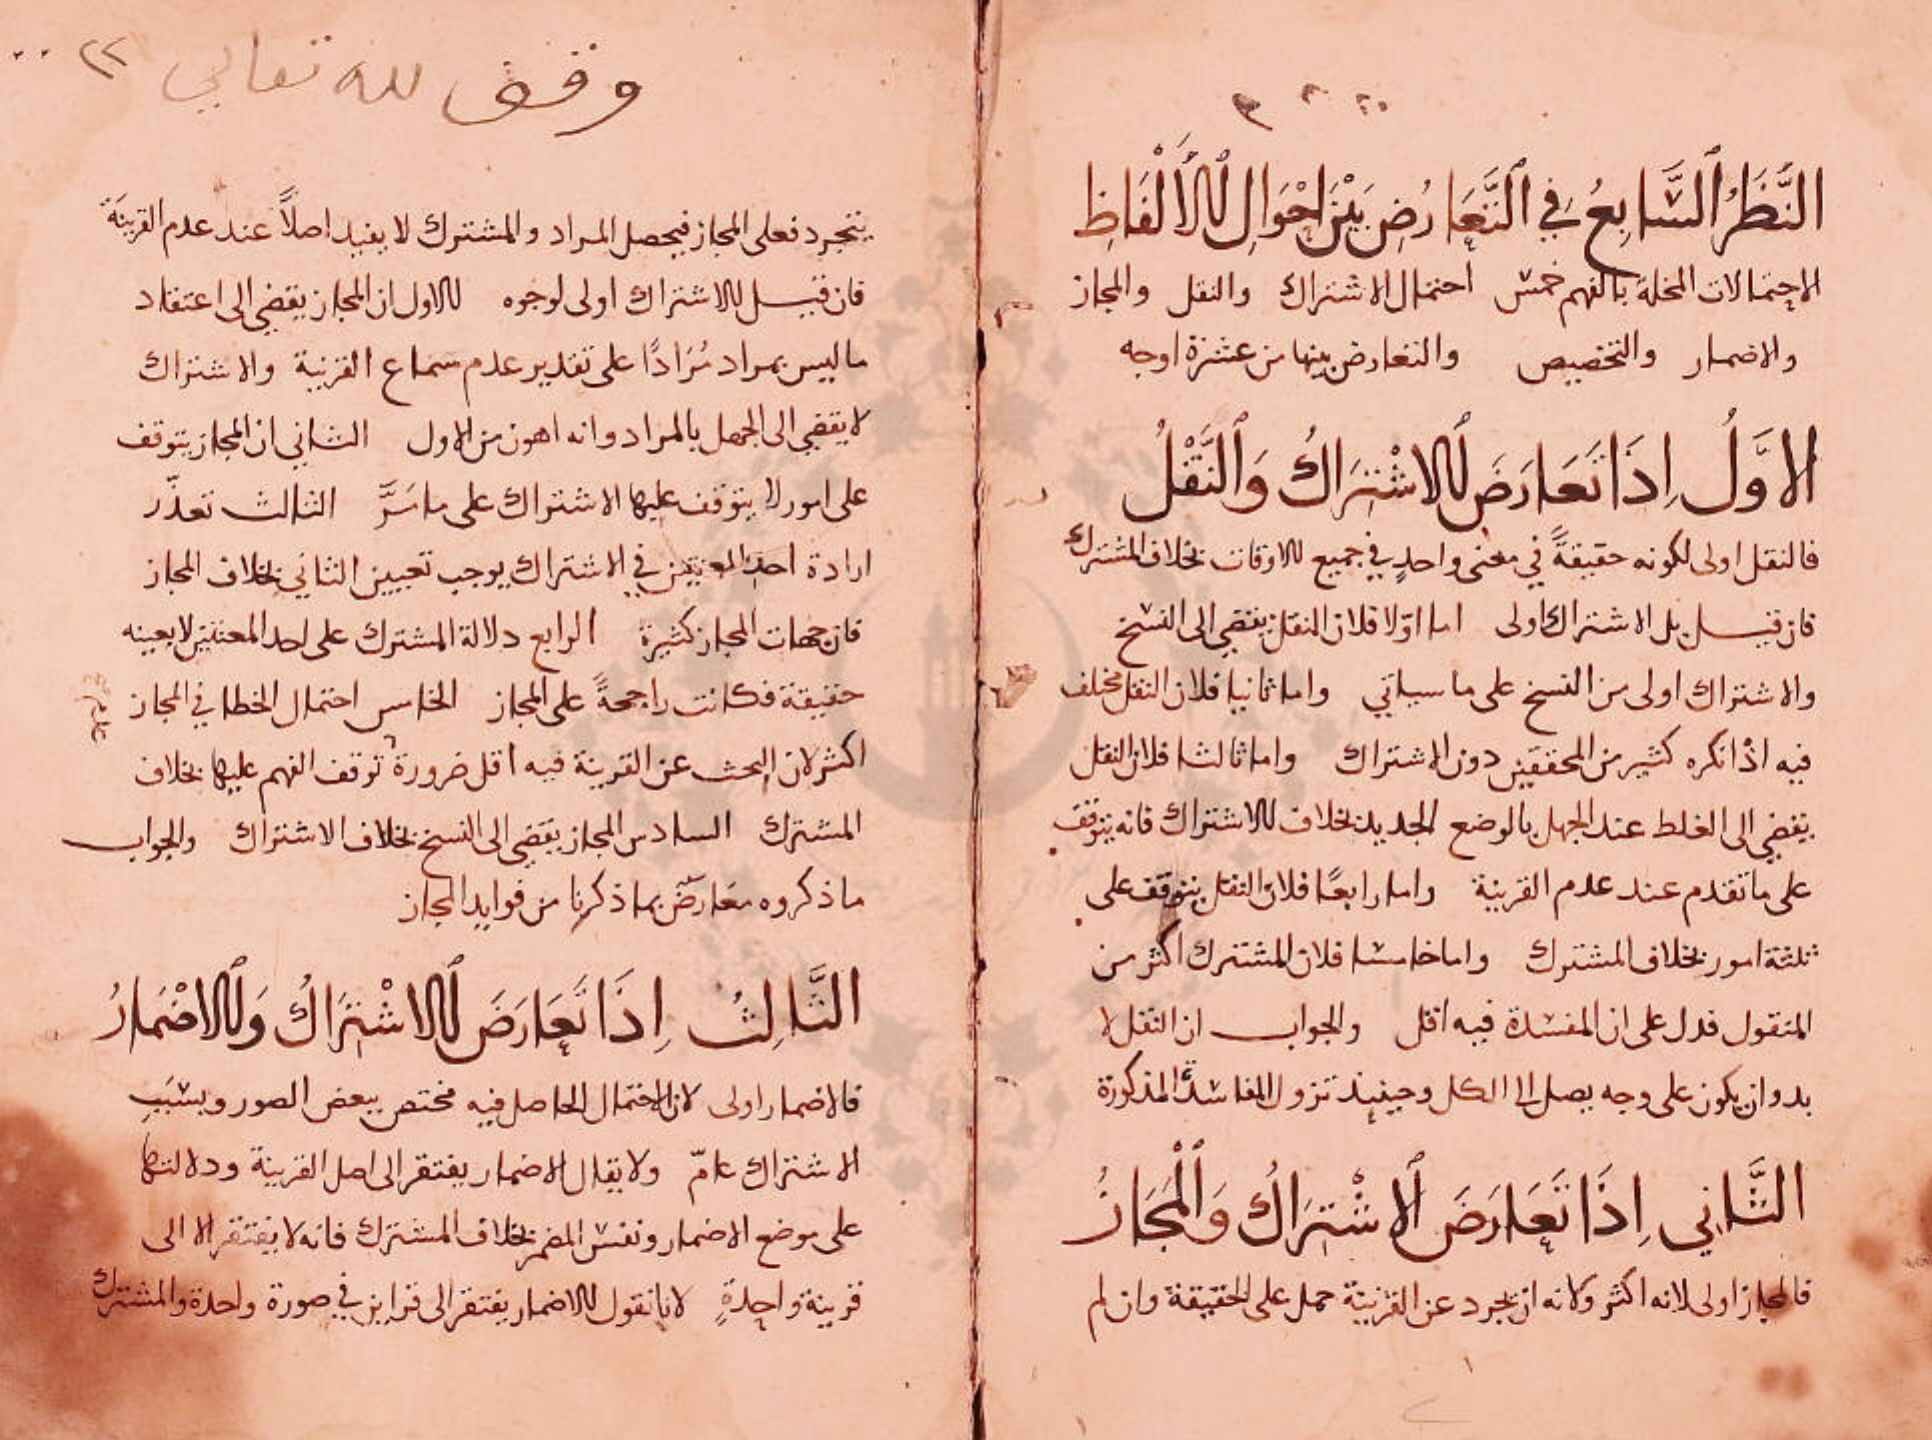 النَّظَرُ السَّابِعُ فِي التَّعَارُضِ بَيْنَ احْوَالِ الأَلْفَاظِ
الاحتمالات المخلة بالفهم خمس احتمال الاشتراك والنقل والمجاز
والاضمار والتخصيص والتعارض بينها من عشرة اوجه
الاوَّلُ اِذَا تَعَارَضَ الاشْتِرَاكُ وَالنَّقْلُ
فالنقل اولى لكونه حقيقةً في معنى واحدٍ في جميع الاوقات بخلاف المشترك
فان قيل بل الاشتراك اولى اما اوّلا فلان النقل يفضي الى النسخ
والاشتراك اولى من النسخ على ما سياتي واما ثانيا فلان النقل مختلف
فيه اذ انكره كثير من المحققين دون الاشتراك واما ثالثا فلان النقل
يفضي الى الغلط عند الجهل بالوضع الجديد بخلاف الاشتراك فانه يتوقف
على ما تقدم عند عدم القرينة واما رابعًا فلان النقل يتوقف على
ثلثة امور بخلاف المشترك واما خامسا فلان المشترك اكثر من
المنقول فدل على ان المفسدة فيه اقل والجواب ان النقل لا
بد وان يكون على وجه يصل الى الكل وحينيذ تزول المفاسد المذكورة
الثَّانِي اِذَا تَعَارَضَ الاشْتِرَاكُ وَالْمَجَازُ
فالمجاز اولى لانه اكثر ولانه ان تجرد عن القرينة حمل على الحقيقة وان لم
وقف لله تعالى ٢٢
يتجرد فعلى المجاز فيحصل المراد والمشترك لا يفيد اصلاً عند عدم القرينة
فان قيل الاشتراك اولى لوجوه الاول ان المجاز يفضي الى اعتقاد
ما ليس بمراد مُرَادًا على تقدير عدم سماع القرينة والاشتراك
لا يفضي الى الجهل بالمراد وانه اهون من الاول الثاني ان المجاز يتوقف
على امور لا يتوقف عليها الاشتراك على ما مَرَّ الثالث تعذّر
ارادة احد المعنيين في الاشتراك يوجب تعيين الثاني بخلاف المجاز
فان جهات المجاز كثيرة الرابع دلالة المشترك على احد المعنيين لا بعينه
حقيقة فكانت راجحةً على المجاز الخامس احتمال الخطا في المجاز
اكثر لان البحث عن القرينة فيه اقل ضرورة توقف الفهم عليها بخلاف
المشترك السادس المجاز يفضي الى النسخ بخلاف الاشتراك والجواب
ما ذكروه معارضٌ بما ذكرنا من فوايد المجاز
الثَّالِثُ اِذَا تَعَارَضَ الاشْتِرَاكُ وَالاضْمَارُ
فالاضمار اولى لان الاختلال الحاصل فيه مختص ببعض الصور وبسَبَبِ
الاشتراك عامّ ولا يقال الاضمار يفتقر الى اصل القرينة ودلالتها
على موضع الاضمار ونفس المضمر بخلاف المشترك فانه لا يفتقر الا الى
قرينة واحدةٍ لانا نقول الاضمار يفتقر الى قراين في صورة واحدة والمشترك